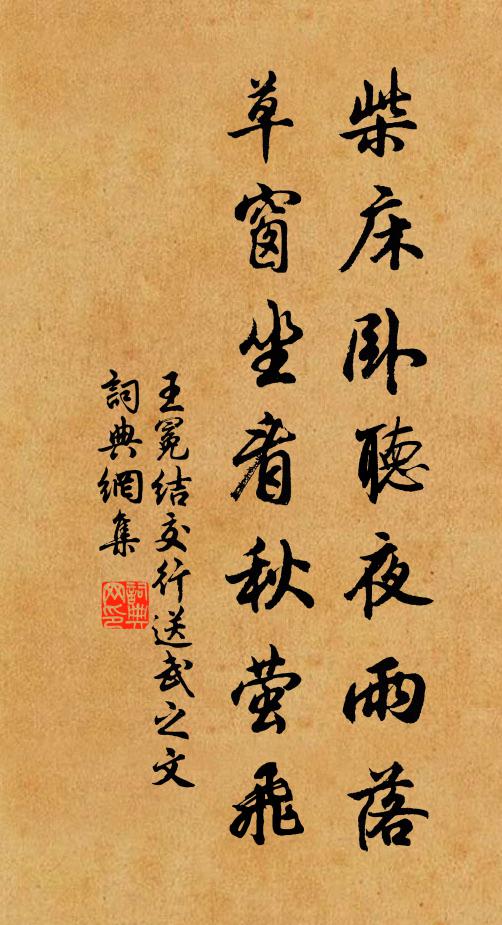 柴床卧聽夜雨落
草窗坐看秋螢飛
王冕結交行送武之文
詞典網集
詞典网印